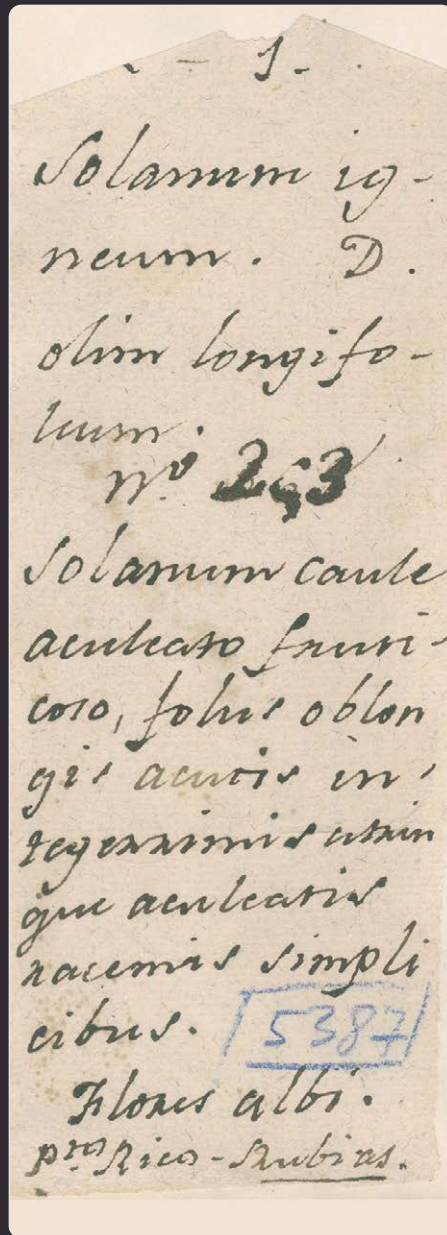 1.
Solanum ig-
neum. D.
olim longifo-
lium.
nº 253
Solanum caule
aculeato fruti-
coso, foliis oblon
gis acutis in-
tegerrimis utrin
que aculeatis
racemis simpli
cibus. 5387
Flores albi.
pto Rico - Rubias.